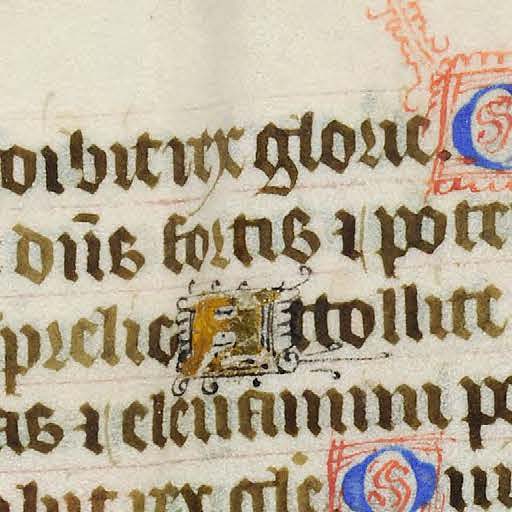 oibit rex glorie. Q
dn̄s fortis ⁊ poten
prelio Attollite
as ⁊ eleuamini po
ibit rex glē Q uis